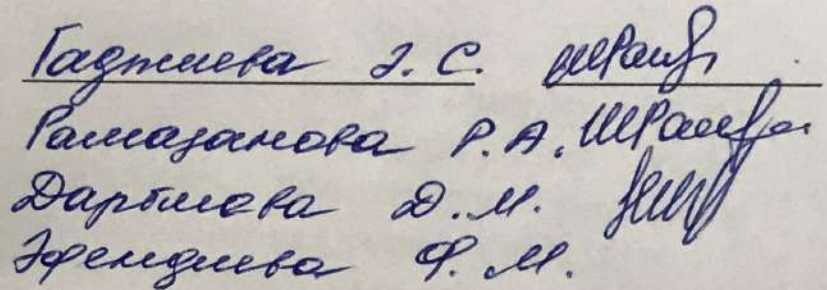 Гаджиева Э. С.
Рамазанова Р. А.
Дарбишева Д. М.
Эфендиева Ф. М.